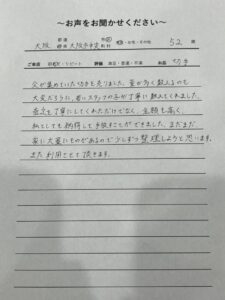 ～お声をお聞かせください～
大阪 都道府県 大阪市中央 市区町村 男性・女性・その他 52 歳
ご来店 初めて・リピート 評価 満足・普通・不満 お品 切手
父が集めていた切手を売りました。量が多く数えるのも
大変だろうに、若いスタッフの子が丁寧に数えてくれました。
査定を丁寧にしてくれただけでなく、金額も高く、
私としても納得して手放すことができました。まだまだ
家に大量にものがあるので少しずつ整理しようと思います。
また利用させて頂きます。